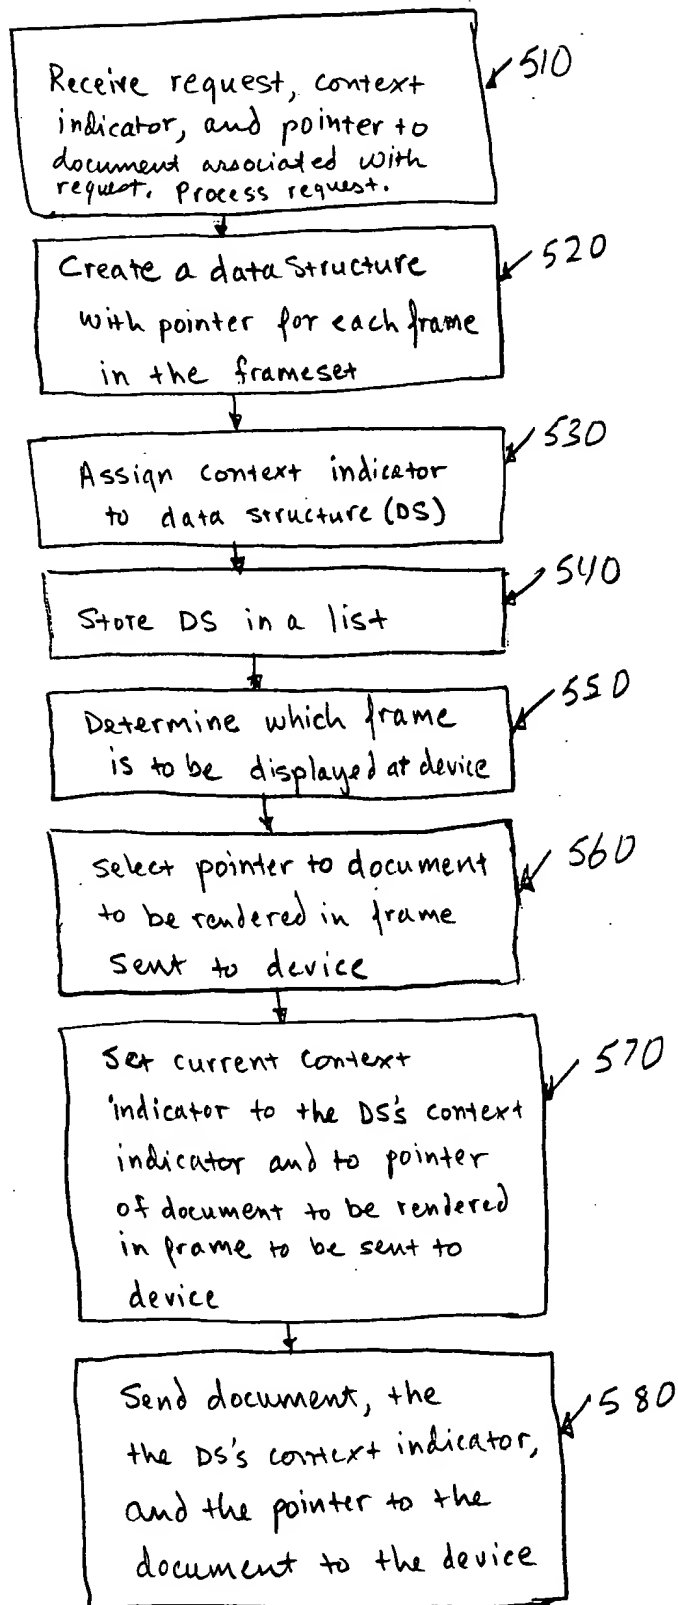 510
Receive request, context
indicator, and pointer to
document associated with
request. Process request.
520
Create a data structure
with pointer for each frame
in the frameset
530
Assign context indicator
to data structure (DS)
540
Store DS in a list
550
Determine which frame
is to be displayed at device
560
select pointer to document
to be rendered in frame
sent to device
570
Set current context
indicator to the DS's context
indicator and to pointer
of document to be rendered
in frame to be sent to
device
580
Send document, the
the DS's context indicator,
and the pointer to the
document to the device